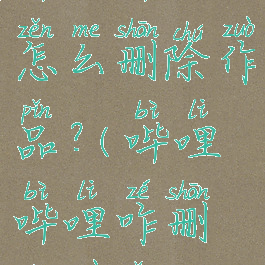 zěn me shān chú zuò
怎么删除作
pǐn bì lì
品？（哔哩
bì lì zé shān
哔哩咋删